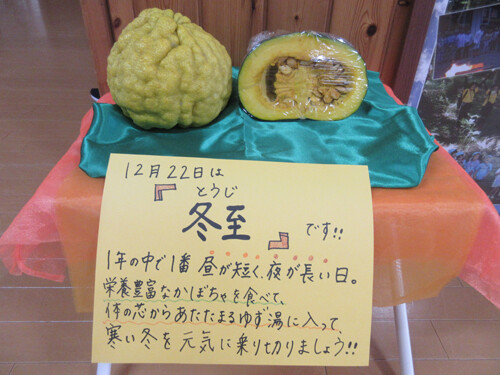 12月22日は
とうじ
『冬至』です!!
1年の中で1番 昼が短く、夜が長い日。
栄養豊富なかぼちゃを食べて、
体の芯からあたたまるゆず湯に入って
寒い冬を元気に乗り切りましょう!!